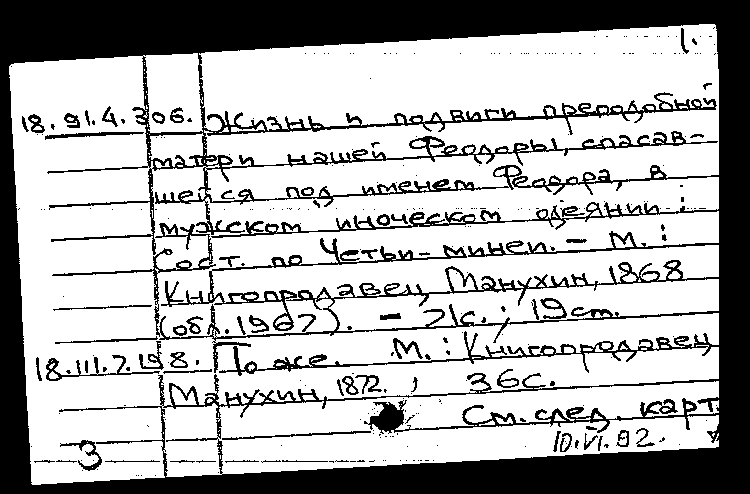 1.
18.91.4.306. Жизнь и подвиги преподобной
матери нашей Феодоры, спасав-
шейся под именем Феодора, в
мужском иноческом одеянии :
Сост. по Четьи-минеи. – М. :
Книгопродавец Манухин, 1868
(обл. 1967). – 71с. ; 19ст.
18.III.7.198. То же. М. : Книгопродавец
Манухин, 1872. ; 36с.
См. след. карт.
3 10.VI.92.